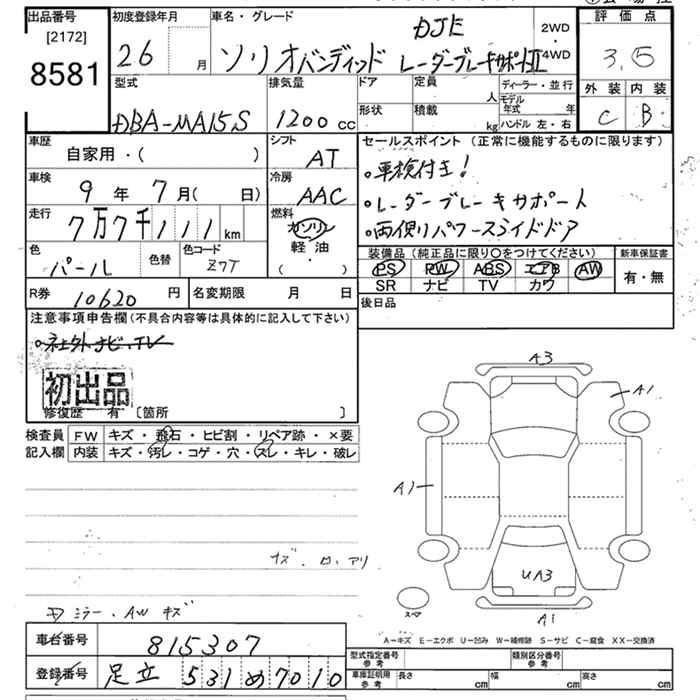 出品番号
[2172]
8581
初度登録年月
26 月
車名・グレード
DJE
ソリオバンディッド レーダーブレーキサポートⅡ
2WD
・
4WD
評価点
3.5
外装 内装
C B
型式
DBA-MA15S
排気量
1200 cc
ドア
形状
定員
人
積載
kg
ディーラー・並行
モデル年式 年
ハンドル 左・右
車歴
自家用・( )
シフト
AT
車検
9 年 7 月( 日)
冷房
AAC
走行
7万7千111 km
燃料
ガソリン
軽・油
( )
色
パール
色替
色コード
Z7T
R券 10620 円
名変期限 月 日
セールスポイント (正常に機能するものに限ります)
。車検付き!
。レーダーブレーキサポート
。両側パワースライドドア
装備品 (純正品に限り○をつけてください)
PS PW ABS エアB AW
SR ナビ TV カワ
新車保証書
有・無
後日品
注意事項申告欄 (不具合内容等は具体的に記入して下さい)
。社外ナビ、TV
初出品
修復歴 有 [箇所 ]
検査員記入欄
FW キズ・飛石・ヒビ割・リペア跡・×要
内装 キズ・汚レ・コゲ・穴・スレ・キレ・破レ
A3
A1
A1
UA3
A1
スペア
ミラー・AW キズ
A-キズ E-エクボ U-凹み W-補修跡 S-サビ C-腐食 XX-交換済
車台番号 815307
登録番号 足立 531 め 7010
型式指定番号 参考
類別区分番号 参考
車庫証明用 参考 長さ cm 幅 cm 高さ cm